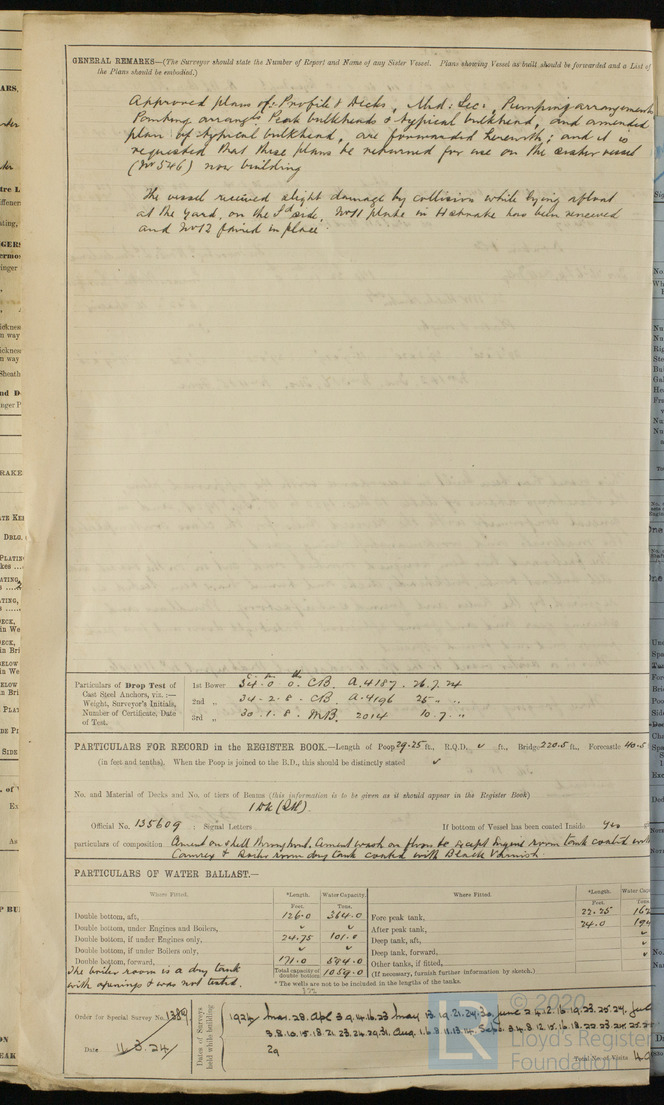 GENERAL REMARKS—(The Surveyor should state the Number of Report and Name of any Sister Vessel. Plans shewing Vessel as built should be forwarded and a List of
the Plans should be embodied.)
Approved plans of:- Profile & Decks, Mid: Sec:, Pumping arrangements
Peak bulkheads & typical bulkhead, and amended
plan of typical bulkhead, are forwarded herewith; and it is
requested that these plans be returned for use on the sister vessel
(No 546) now building
The vessel received slight damage by collision while lying afloat
at the yard, on the side, No 11 plate in H strake has been renewed
and No 12 faired in place
Particulars of Drop Test of
Cast Steel Anchors, viz.:—
Weight, Surveyor's Initials,
Number of Certificate, Date
of Test.
1st Bower 34-0-0. CB. A.4187. 26.7.24
2nd „ 34-2-8. CB. A.4196 25 „ „
3rd „ 30.1.8. MB. 2014 10.7. „
PARTICULARS FOR RECORD in the REGISTER BOOK.—Length of Poop 29.25 ft., R.Q.D. ✓ ft., Bridge 220.5 ft., Forecastle 40.5
(in feet and tenths). When the Poop is joined to the B.D., this should be distinctly stated ✓
No. and Material of Decks and No. of tiers of Beams (this information is to be given as it should appear in the Register Book)
1 Dk
Official No. 135609 ; Signal Letters If bottom of Vessel has been coated Inside Yes
particulars of composition Cement on shell throughout. Cement wash on floors &c except Engine room tank coated with
& Boiler room dry tank coated with Black Varnish
PARTICULARS OF WATER BALLAST.—
Where Fitted. *Length. Water Capacity. Where Fitted. *Length.
Feet. Tons. Feet. Tons.
Double bottom, aft, 126.0 364.0 Fore peak tank, 22.25 162
Double bottom, under Engines and Boilers, ✓ ✓ After peak tank, 24.0 194
Double bottom, if under Engines only, 24.75 101.0 Deep tank, aft, ✓
Double bottom, if under Boilers only, ✓ ✓ Deep tank, forward, ✓
Double bottom, forward, 171.0 594.0 Other tanks, if fitted,
Total capacity of double bottom 1059.0 (If necessary, furnish further information by sketch.)
The boiler room is a dry tank
with openings & was not tested.
* The wells are not to be included in the lengths of the tanks.
Order for Special Survey No. 1389
Date 11.3.24
Dates of Surveys held while building
1924 Mar. 28. Apl 3.9.14.16.23 May 13.19.21.24.30. June 2.4.12.16.19.23.25.24. July
3.8.10.15.18.21.23.24.29.31. Aug. 1.6.8.11.13.14. Sept. 3.4.8.12.15.16.18.22.23.24.25.
29
Total No. of Visits
© 2020
LR
Lloyd's Register
Foundation